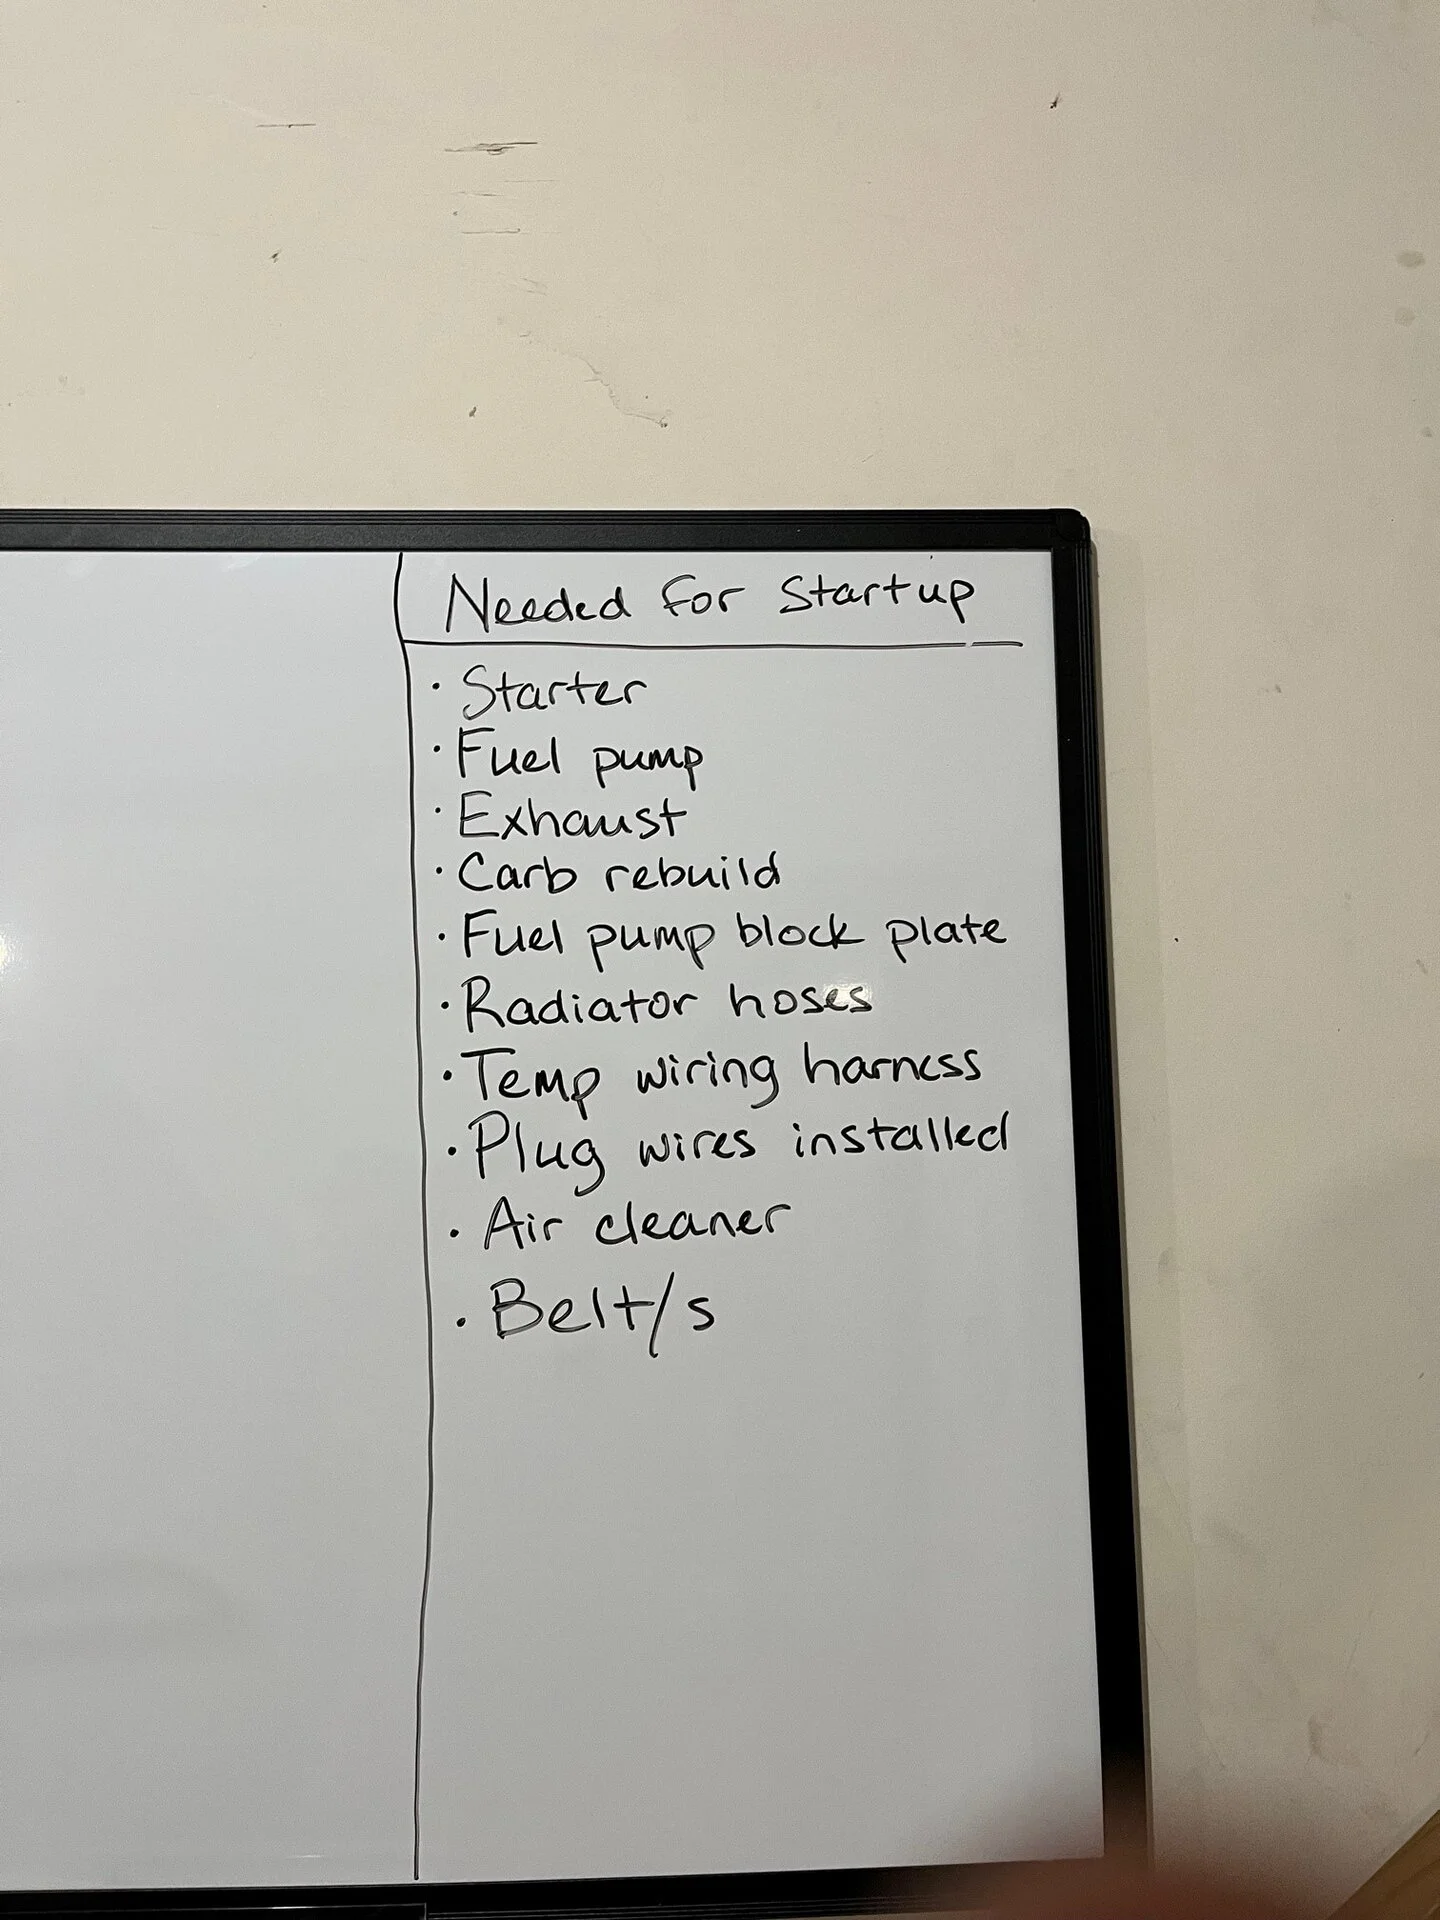 Needed for Startup
· Starter
· Fuel pump
· Exhaust
· Carb rebuild
· Fuel pump block plate
· Radiator hoses
· Temp wiring harness
· Plug wires installed
· Air cleaner
· Belt/s